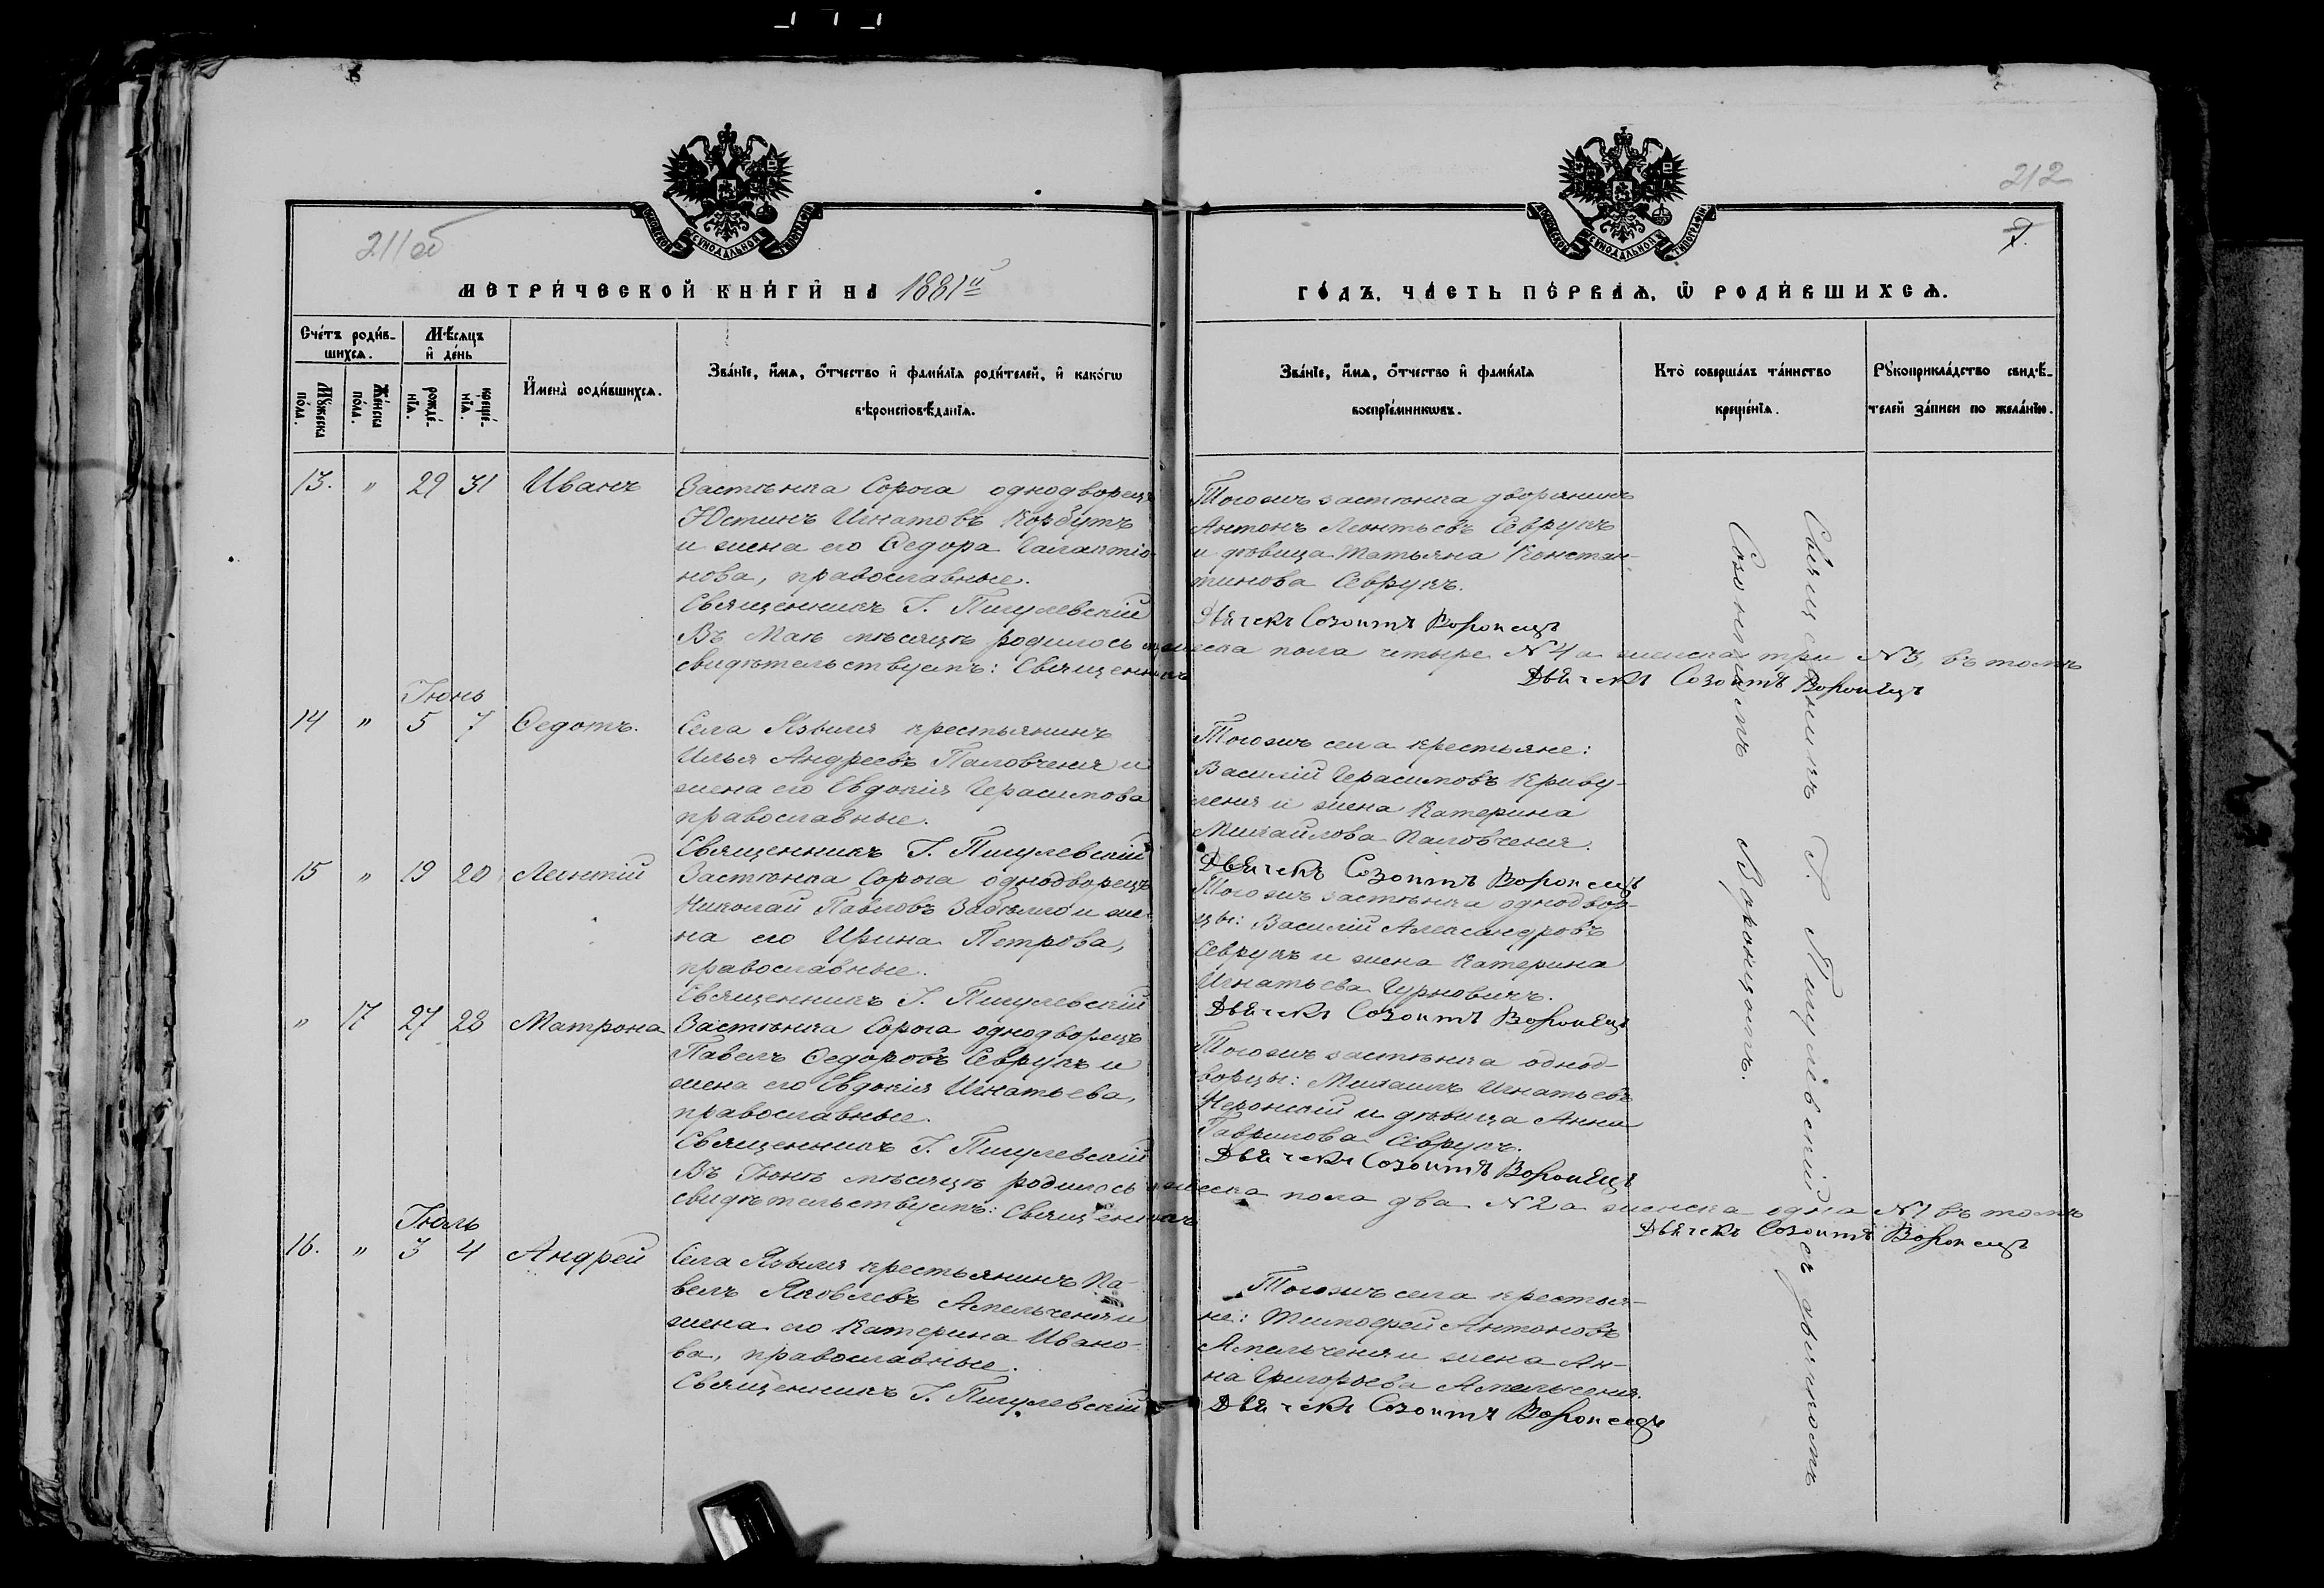 212
211об
7.
МОСКОВСКОЙ СѴНОДАЛЬНОЙ ТИПОГРАФІИ
МОСКОВСКОЙ СѴНОДАЛЬНОЙ ТИПОГРАФІИ
МЕТРИ́ЧЕСКОЙ КНИ́ГИ НА 1881й
ГО́ДЪ, ЧА́СТЬ ПЕ́РВАѦ, Ѿ РОДИ́ВШИХСѦ.
Сче́тъ роди́в-
шихсѧ.
Мѣ́сѧцъ
и҆ де́нь
Мꙋ́жеска
по́ла.
Же́нска
по́ла.
рожде́-
нїѧ.
креще́-
нїѧ.
И҆мена̀ роди́вшихсѧ.
Зва́нїе, и҆́мѧ, ѻ҆́тчество и҆ фами́лїѧ роди́телей, и҆ како́гѡ
вѣроисповѣ́данїѧ.
Зва́нїе, и҆́мѧ, ѻ҆́тчество и҆ фами́лїѧ
воспрїе́мникѡвъ.
Кто̀ соверша́лъ та́инство
креще́нїѧ.
Рꙋкоприкла́дство свидѣ́-
телей за́писи по жела́нїю.
13. " 29 31 Иванъ
Застѣнка Сорога однодворецъ
Юстинъ Игнатовъ Корбутъ
и жена его Ѳедора Галактіо-
нова, православные.
Священникъ І. Пигулевскій
Тогожъ застѣнка дворянинъ
Антонъ Леонтьевъ Севрукъ
и дѣвица Татьяна Констан-
тинова Севрукъ.
Дьячекъ Созонтъ Воронецъ
Въ Маѣ мѣсяцѣ родилось мужеска пола четыре №4 а женска три №3, въ томъ
свидѣтельствуемъ: Священникъ
Дьячекъ Созонтъ Воронецъ
Іюнь
14 " 5 7 Ѳедотъ.
Села Язвиля крестьянинъ
Илья Андреевъ Паловченя и
жена его Евдокія Герасимова
православные.
Священникъ І. Пигулевскій
Тогожъ села крестьяне:
Василій Герасимовъ Криву-
леня и жена Катерина
Михайлова Паловченя.
Дьячекъ Созонтъ Воронецъ
15 " 19 20 Леонтій
Застѣнка Сорога однодворецъ
Николай Павловъ Забѣлло и же-
на его Ирина Петрова,
православные.
Священникъ І. Пигулевскій
Тогожъ застѣнка однодвор-
цы: Василій Александровъ
Севрукъ и жена Катерина
Игнатьева Гурновичъ.
Дьячекъ Созонтъ Воронецъ
" 17 27 28 Матрона
Застѣнка Сорога однодворецъ
Павелъ Ѳедоровъ Севрукъ и
жена его Евдокія Игнатьева,
православные.
Священникъ І. Пигулевскій
Тогожъ застѣнка однод-
ворцы: Михаилъ Игнатьевъ
и дѣвица Анна
Гаврилова Севрукъ.
Дьячекъ Созонтъ Воронецъ
Въ Іюнѣ мѣсяцѣ родилось мужеска пола два №2 а женска одна №1 въ томъ
свидѣтельствуемъ: Священникъ
Дьячекъ Созонтъ Воронецъ
Іюль
16. " 3 4 Андрей
Села Язвиля крестьянинъ Па-
велъ Яковлевъ Амельченя и
жена его Катерина Ивано-
ва, православные.
Священникъ І. Пигулевскій
Тогожъ села крестья-
не: Тимофей Антоновъ
Амельченя и жена Ан-
на Григорьева Амельченя.
Дьячекъ Созонтъ Воронецъ
Священникъ І. Пигулевскій съ дьячкомъ
Созонтомъ Воронцомъ.